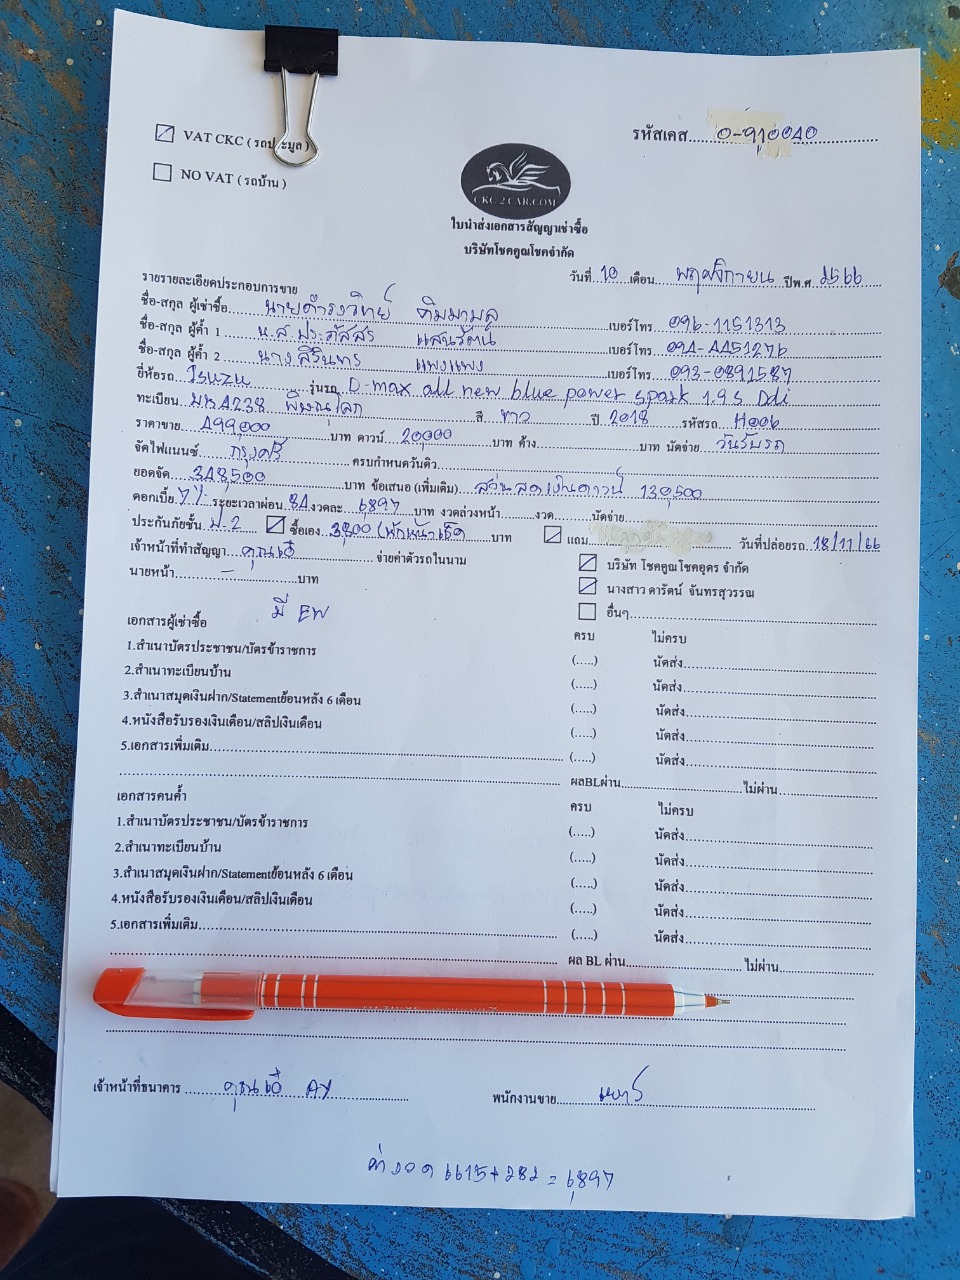 VAT CKC ( รถประมูล )
รหัสเคส..... 0-910040
NO VAT ( รถบ้าน )
CKC 2 CAR.COM
ใบนำส่งเอกสารสัญญาเช่าซื้อ
บริษัทโชคคูณโชคจำกัด
วันที่ 10 เดือน พฤศจิกายน ปีพ.ศ 2566
รายรายละเอียดประกอบการขาย
ชื่อ-สกุล ผู้เช่าซื้อ นายดำรงวิทย์ ทิมมามล เบอร์โทร 096-1151313
ชื่อ-สกุล ผู้ค้ำ 1 น.ส.ประภัสสร แสนรัตน์ เบอร์โทร 094-4451276
ชื่อ-สกุล ผู้ค้ำ 2 นางสิรินทร แพงแพง เบอร์โทร 093-0891587
ยี่ห้อรถ Isuzu รุ่นรถ D-max all new blue power spark 1.9 s Ddi
ทะเบียน 4238 พิษณุโลก สี ขาว ปี 2018 รหัสรถ H006
ราคาขาย 499,000 บาท ดาวน์ 20,000 บาท ค้าง บาท นัดจ่าย วันรับรถ
จัดไฟแนนซ์ กรุงศรี ครบกำหนดวันคิว
ยอดจัด 348,500 บาท ข้อเสนอ (เพิ่มเติม) ส่วนลดเงินดาวน์ 130,500
ดอกเบี้ย 7% ระยะเวลาผ่อน 84 งวดละ 6,897 บาท งวดล่วงหน้า งวด นัดจ่าย
ประกันภัยชั้น ป.2 ซื้อเอง 3,800 (หักหน้าเช็ค บาท แถม วันที่ปล่อยรถ 18/11/66
เจ้าหน้าที่ทำสัญญา คุณเอ๋ จ่ายค่าตัวรถในนาม บริษัท โชคคูณโชคอุดร จำกัด
นายหน้า - บาท นางสาว ดารัตน์ จันทรสุวรรณ
มี EW
อื่นๆ
เอกสารผู้เช่าซื้อ ครบ ไม่ครบ
1.สำเนาบัตรประชาชน/บัตรข้าราชการ (.....) นัดส่ง
2.สำเนาทะเบียนบ้าน (.....) นัดส่ง
3.สำเนาสมุดเงินฝาก/Statementย้อนหลัง 6 เดือน (.....) นัดส่ง
4.หนังสือรับรองเงินเดือน/สลิปเงินเดือน (.....) นัดส่ง
5.เอกสารเพิ่มเติม (.....) นัดส่ง
ผลBLผ่าน ไม่ผ่าน
เอกสารคนค้ำ ครบ ไม่ครบ
1.สำเนาบัตรประชาชน/บัตรข้าราชการ (.....) นัดส่ง
2.สำเนาทะเบียนบ้าน (.....) นัดส่ง
3.สำเนาสมุดเงินฝาก/Statementย้อนหลัง 6 เดือน (.....) นัดส่ง
4.หนังสือรับรองเงินเดือน/สลิปเงินเดือน (.....) นัดส่ง
5.เอกสารเพิ่มเติม (.....) นัดส่ง
ผล BL ผ่าน ไม่ผ่าน
เจ้าหน้าที่ธนาคาร คุณเอ๋ AY พนักงานขาย
ค่างวด 6615+282 = 6,897